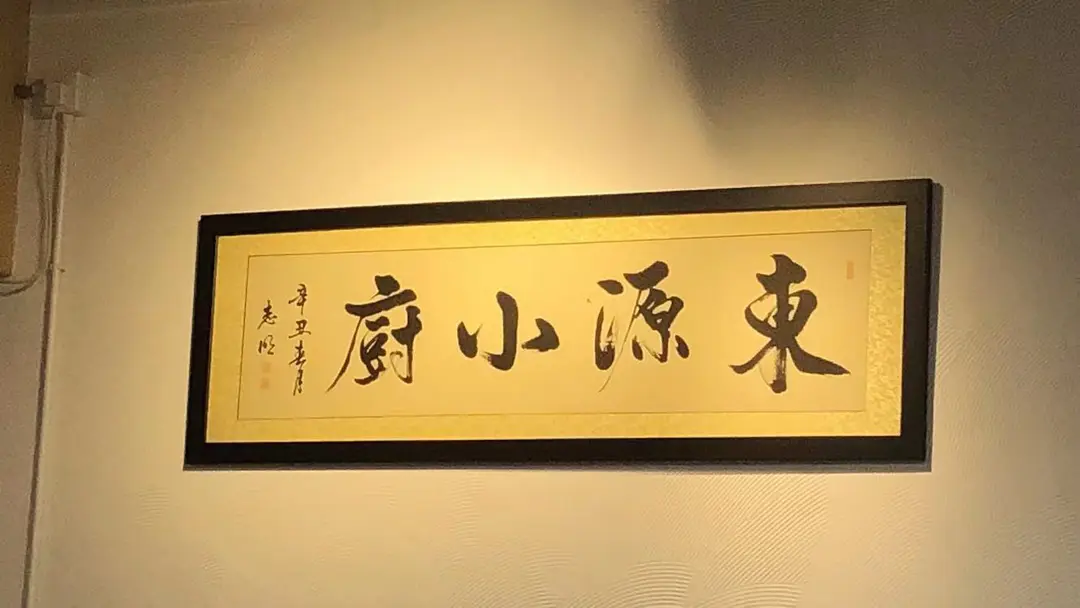 東源小廚
辛丑春月
志明